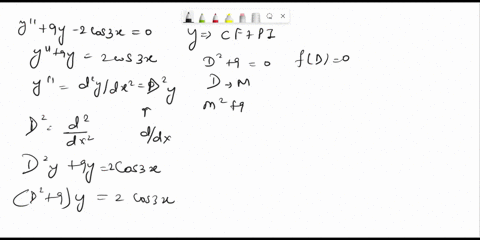 y'' + 9y - 2cos3x = 0
y'' + 9y = 2cos3x
y'' = d²y/dx² = D²y
↑
D² = d²/dx²
d/dx
D²y + 9y = 2Cos3x
(D² + 9)y = 2 cos3x
y ⇒ CF + PI
D² + 9 = 0 f(D) = 0
D → M
M² + 9